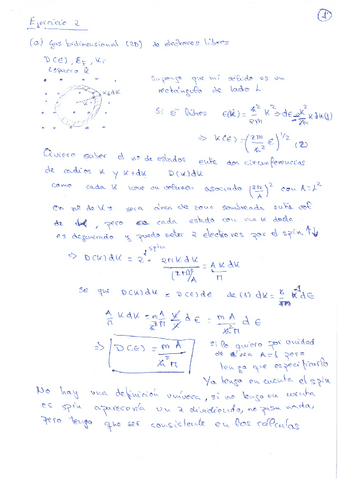 1
Ejercicio 2
(a) Gas bidimensional (2D) de electrones libres
D(E), E_F, K_F
espacio K
K+dK
Suponga que mi sólido es un
rectángulo de lado L
Si e⁻ libres E(K) = ħ²/2m K² ⇒ dE = ħ²/m K dK (1)
⇒ K(E) = (2m/ħ² E)^{1/2} (2)
Quiero saber el nº de estados entre dos circunferencias
de radios K y K+dK D(K)dK
como cada K tiene un volumen asociado (2π)²/A con A=L²
área de zona sombreada
, pero cada estado con una K dada
es degenerado y puedo meter 2 electrones por el spin ↑↓
⇒ D(K)dK = 2 spin · 2πK dK / ((2π)²/A) = A K dK / π
Se que D(K)dK = D(E)dE de (1) dK = m/ħ² K⁻¹ dE
A/π K dK = m A/ħ² π K/K dE = m A/ħ² π dE
⇒ D(E) = m A/ħ² π
si lo quiero por unidad
de área A=1 pero
tengo que especificarlo
Ya tengo en cuenta el spin
No hay una definición univoca, si no tengo en cuenta
el spin aparecería un 2 dividiendo, no pasa nada,
pero tengo que ser consistente en los cálculos